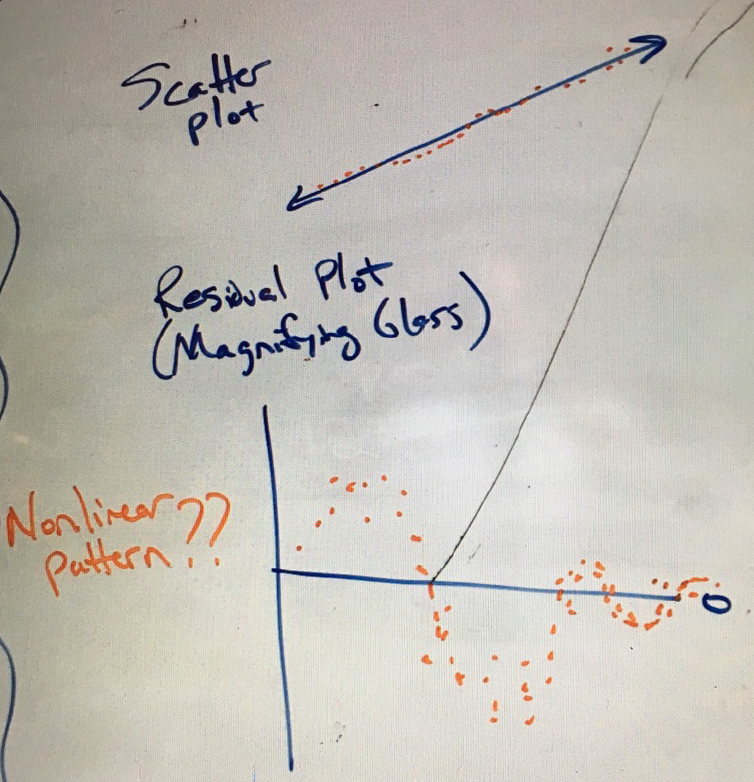 Scatter
plot
Residual Plot
(Magnifying Glass)
Nonlinear
pattern??
0